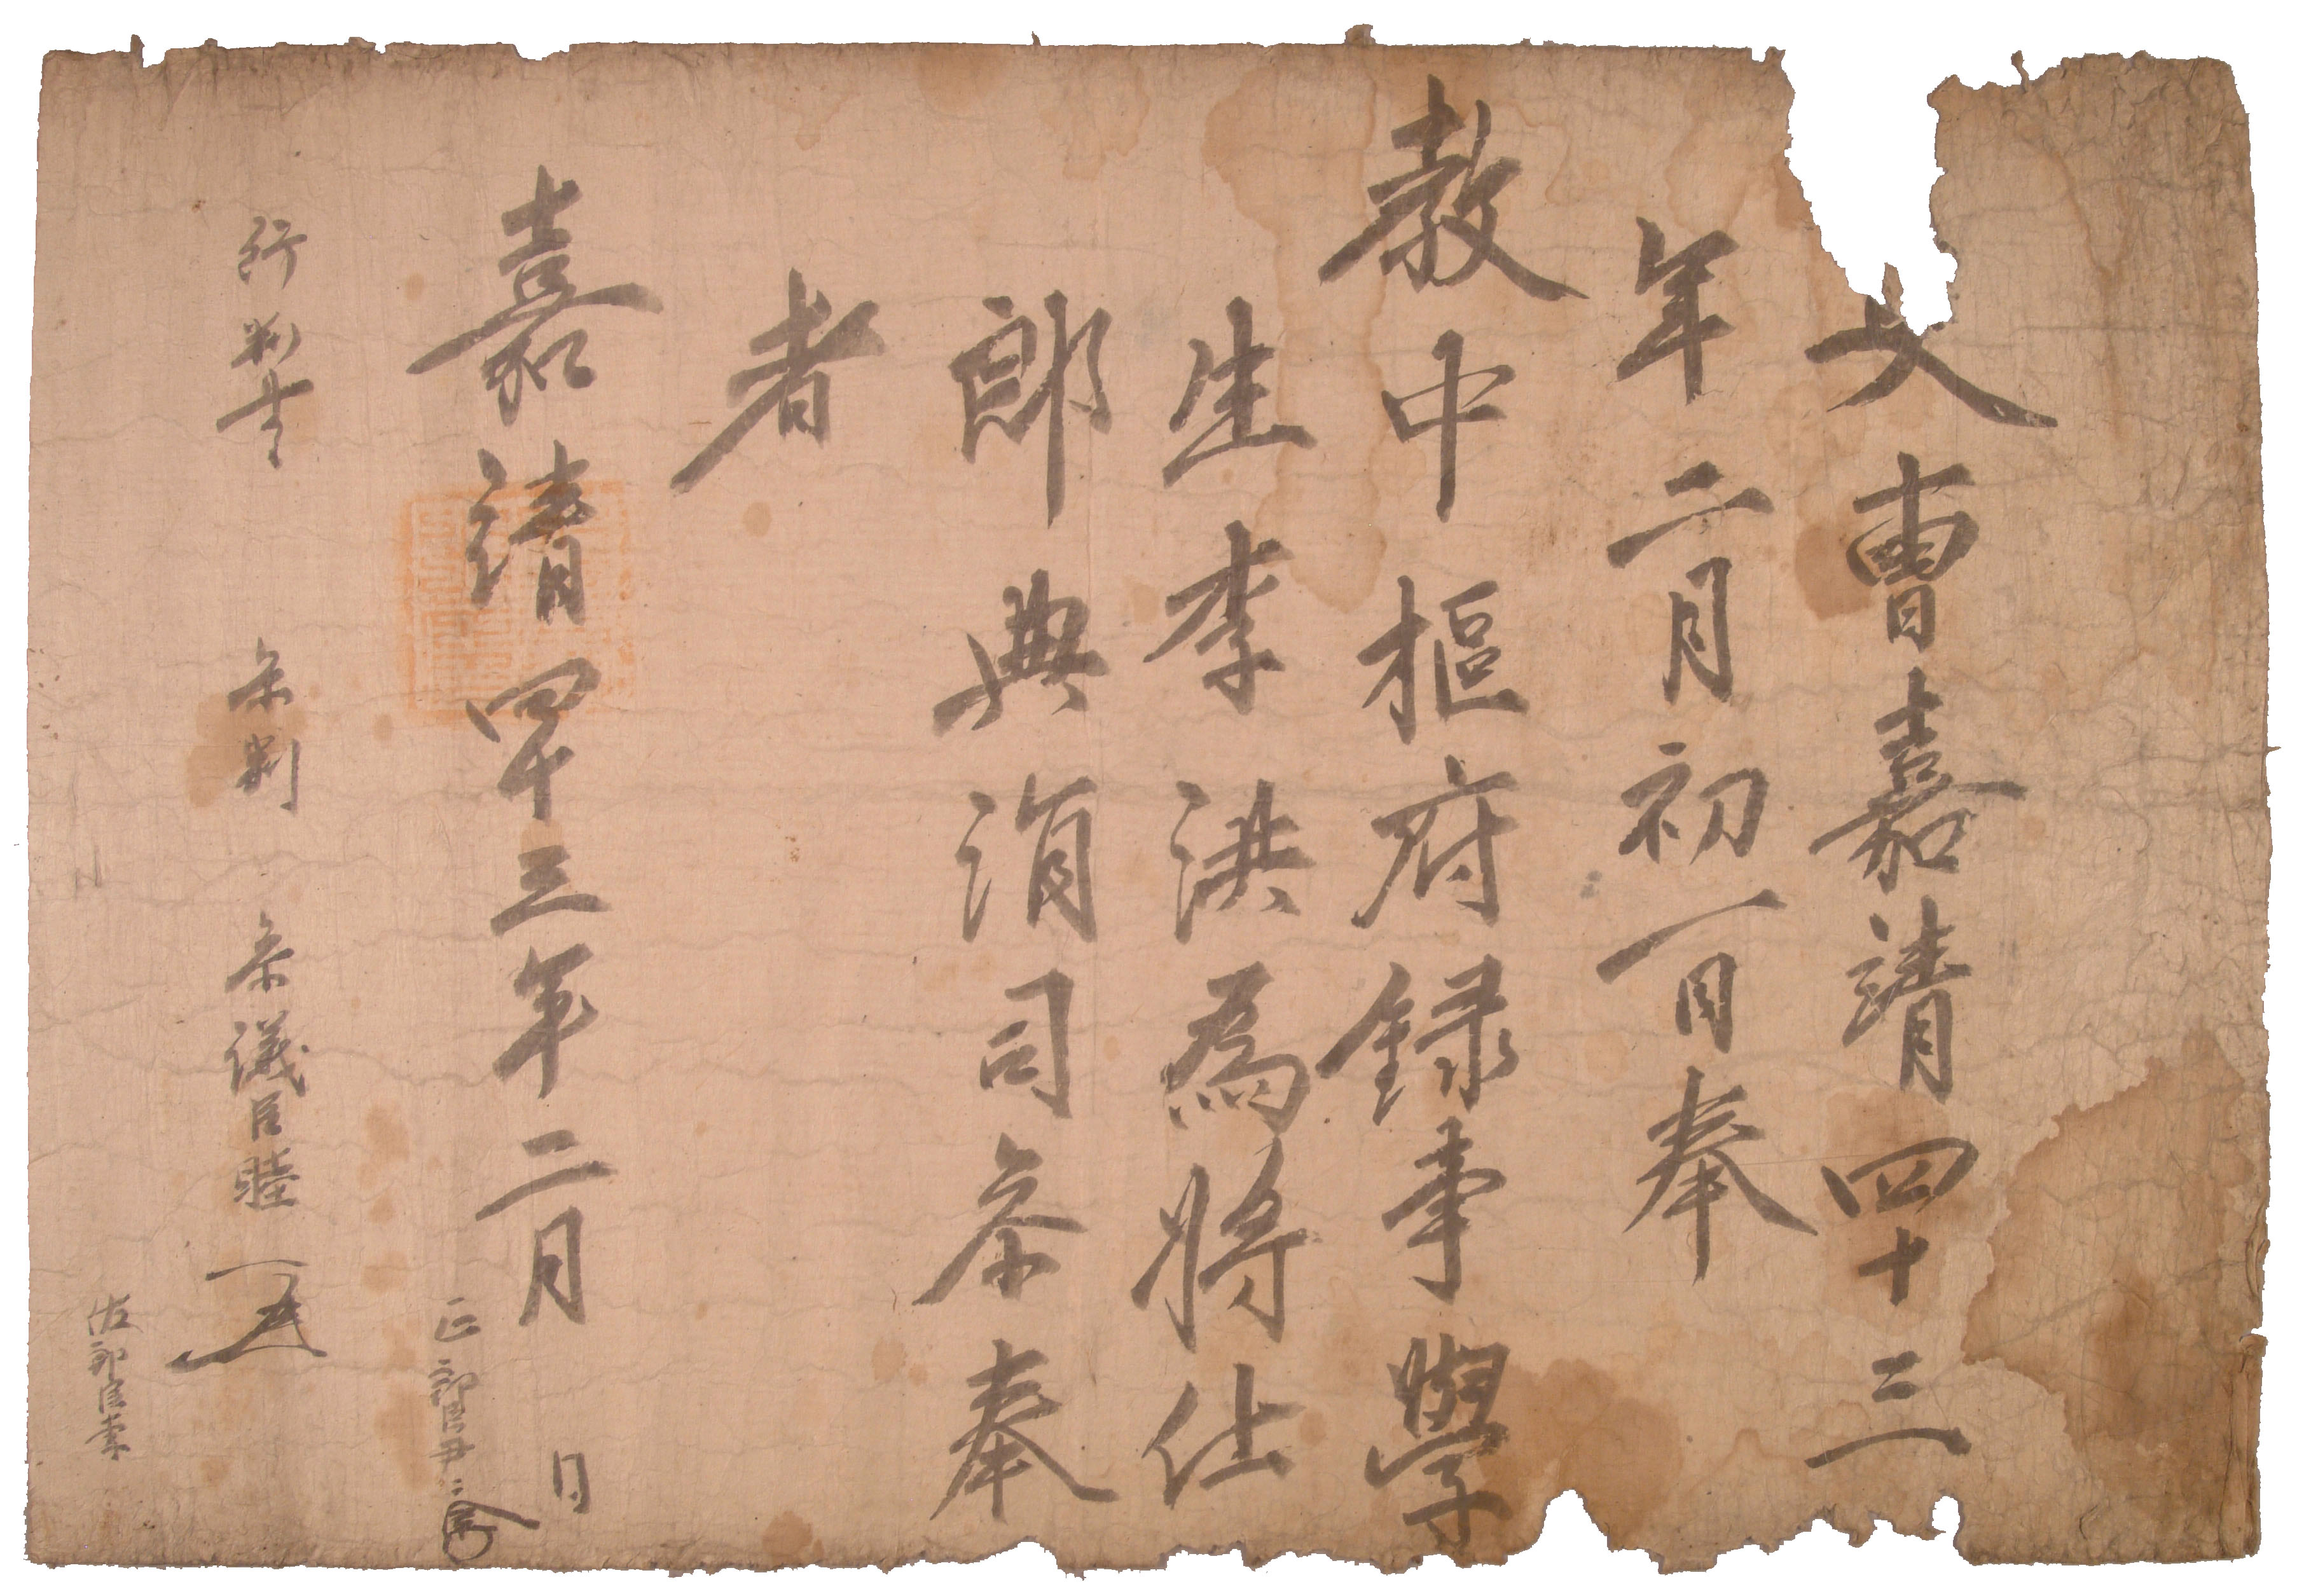 曺嘉靖四十三
年二月初一日奉
敎中樞府錄事學
生李洪爲將仕
郞典涓司叅奉
者
嘉靖四十三年二月 日
正郞臣尹
行判書 叅判 叅議臣睦
佐郞臣李